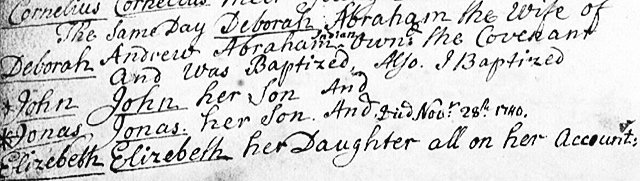 Cornelius Cornelius
The Same Day Deborah Abraham the Wife of
Deborah Andrew Abraham Indian own'd the Covenant
And was Baptized, Also. I Baptized
*John John her Son And
*Jonas Jonas. her Son. And Died Novr. 28th. 1740.
Elizebeth Elizebeth her Daughter all on her Account;